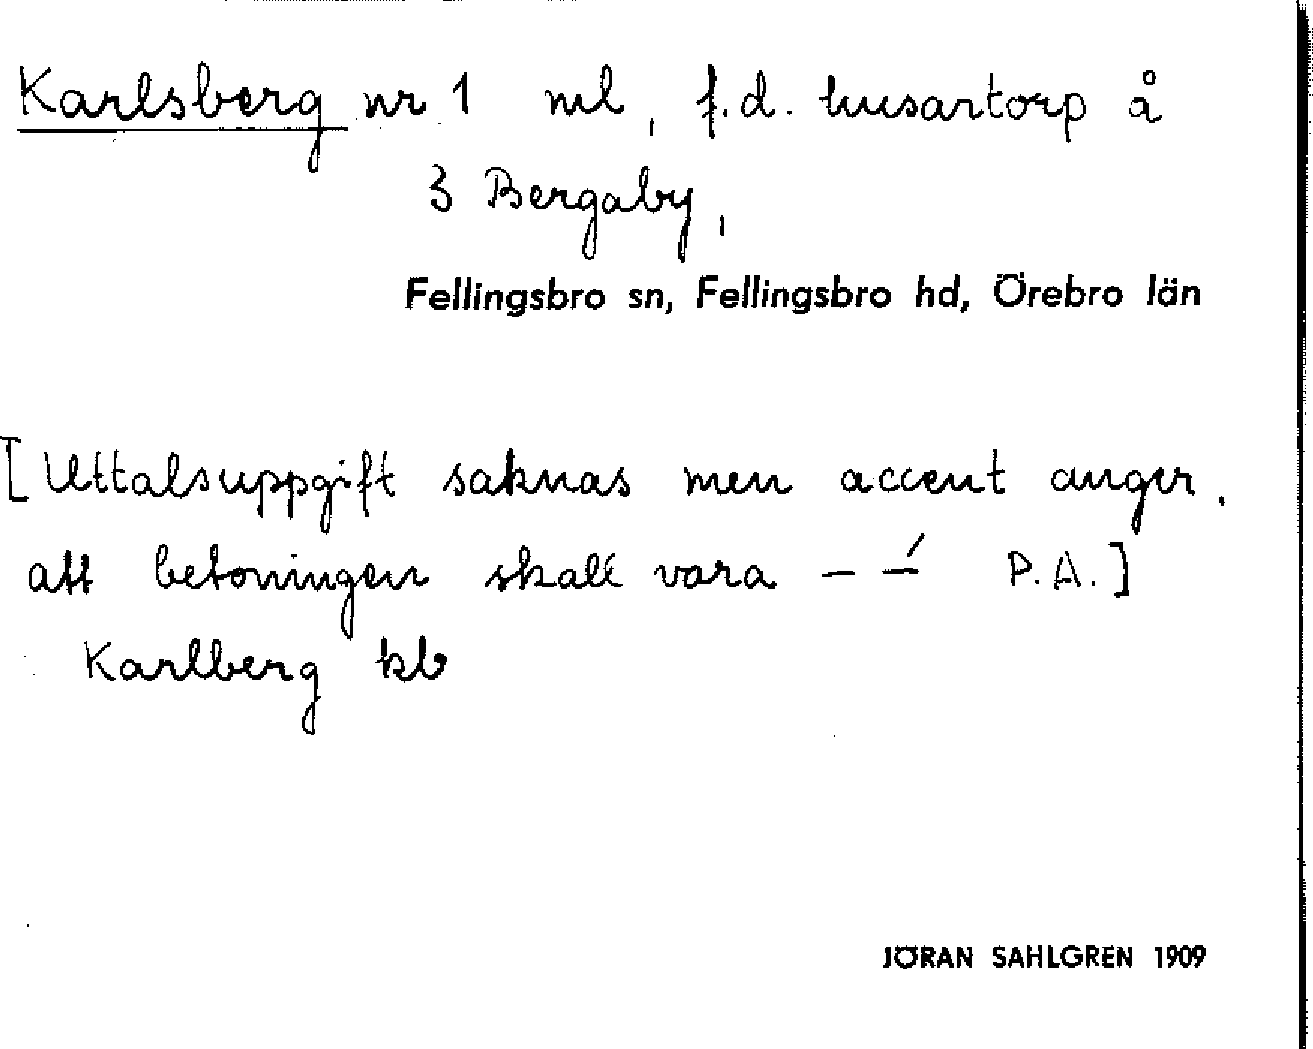 Karlsberg nr 1 ml, f.d. husartorp å
3 Bergaby,
Fellingsbro sn, Fellingsbro hd, Örebro län
[Uttalsuppgift saknas men accent anger.
att betoningen skall vara – –́ P.A.]
Karlberg kb
JÖRAN SAHLGREN 1909